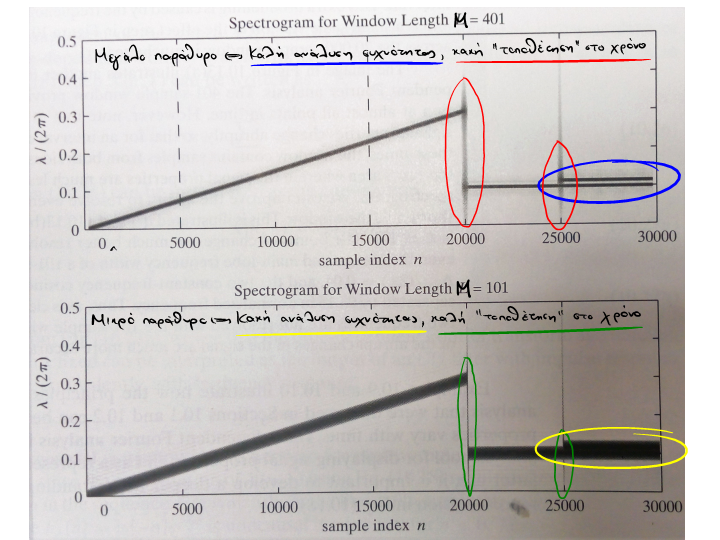 Spectrogram for Window Length M = 401
Μεγάλο παράθυρο ⇔ Καλή ανάλυση συχνότητας, κακή "τοποθέτηση" στο χρόνο
0.5
0.4
0.3
0.2
0.1
0
λ / (2π)
0 5000 10000 15000 20000 25000 30000
sample index n
Spectrogram for Window Length M = 101
Μικρό παράθυρο ⇔ Κακή ανάλυση συχνότητας, καλή "τοποθέτηση" στο χρόνο
0.5
0.4
0.3
0.2
0.1
0
λ / (2π)
0 5000 10000 15000 20000 25000 30000
sample index n